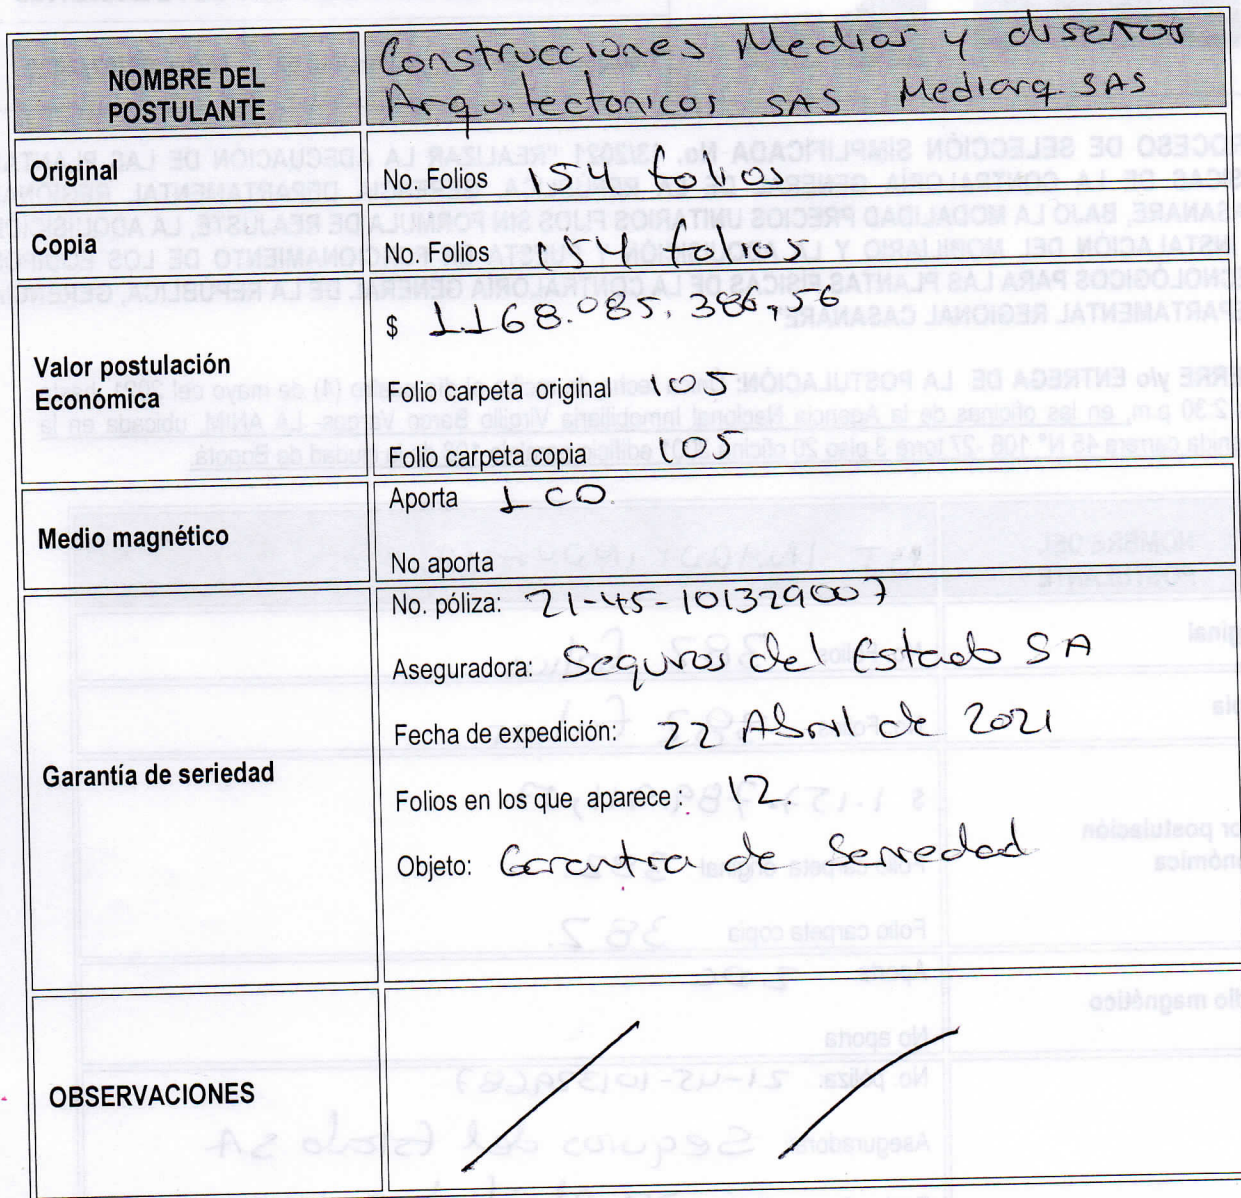 NOMBRE DEL POSTULANTE
Construcciones Medios y diseños
Arquitectonicos SAS Mediarq. SAS
Original
No. Folios 154 folios
Copia
No. Folios 154 folios
Valor postulación Económica
$ 1168.085.386,56
Folio carpeta original 105
Folio carpeta copia 105
Medio magnético
Aporta 1 CD.
No aporta
Garantía de seriedad
No. póliza: 21-45-101329007
Aseguradora: Seguros del Estado SA
Fecha de expedición: 22 Abril de 2021
Folios en los que aparece: 12
Objeto: Garantia de Seriedad
OBSERVACIONES